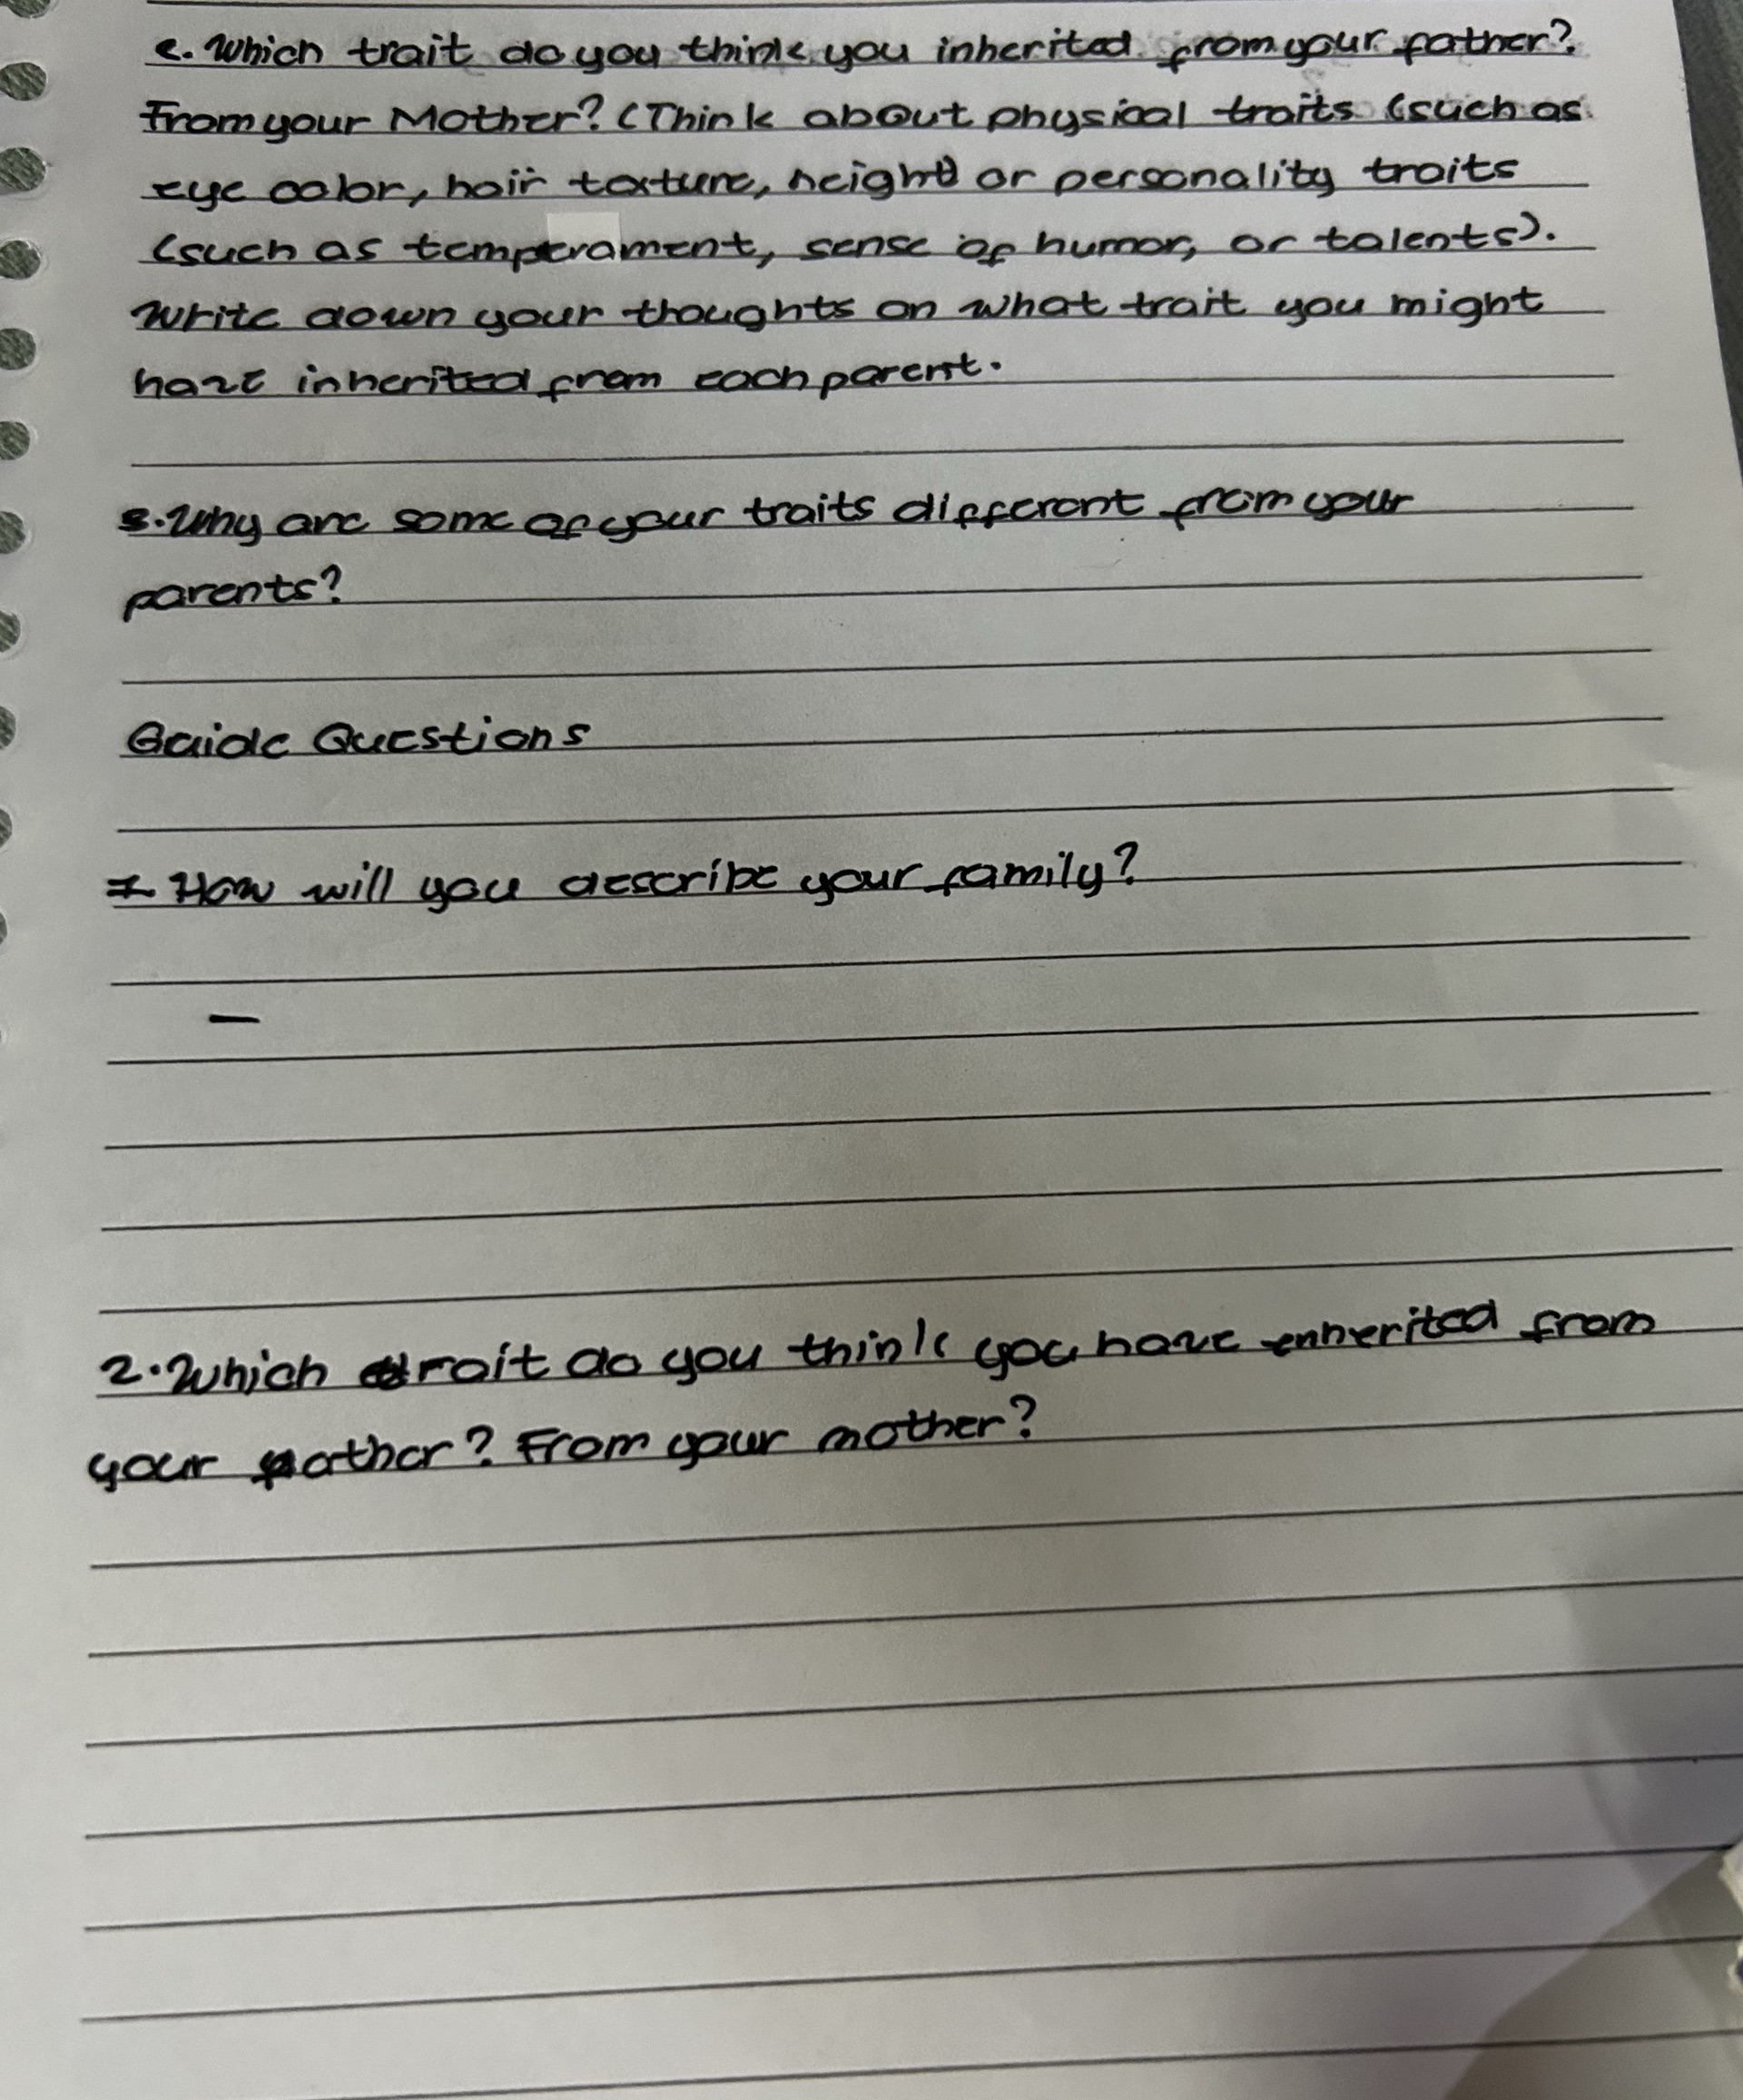 c. Which trait do you think you inherited from your father?
From your Mother? (Think about physical traits (such as
eye color, hair texture, height) or personality traits
(such as temperament, sense of humor, or talents).
Write down your thoughts on what trait you might
have inherited from each parent.
3. Why are some of your traits different from your
parents?
Guide Questions
1. How will you describe your family?
-
2. Which trait do you think you have enherited from
your father? From your mother?